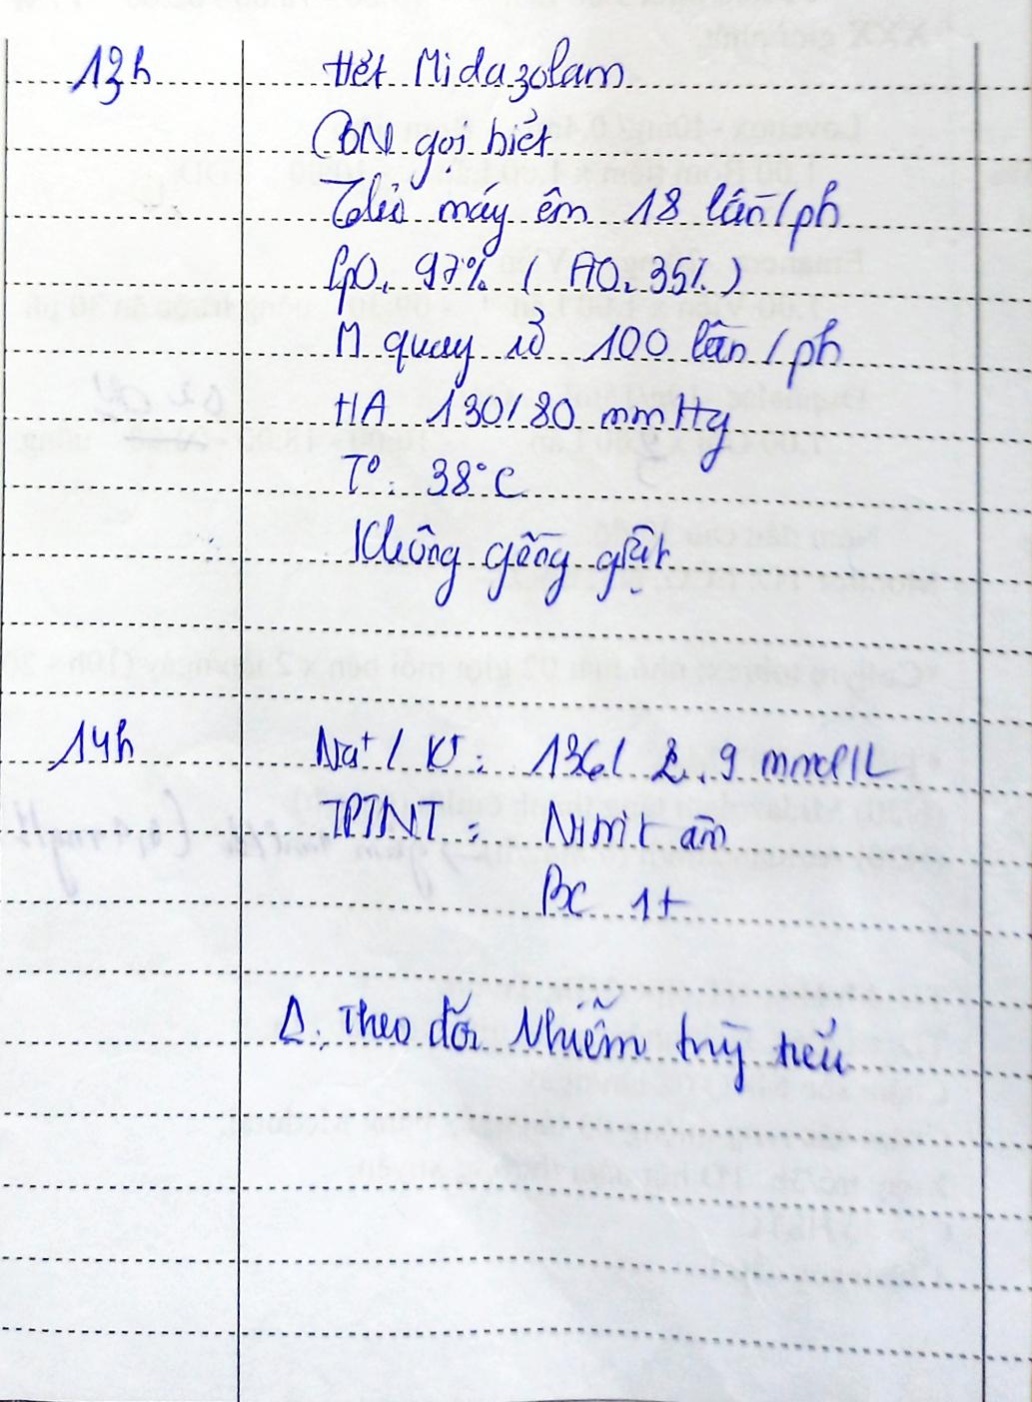 13h Hết Midazolam
BN gọi biết
Thở máy êm 18 lần/ph
SpO₂ 97% ( FiO₂ 35% )
M quay rõ 100 lần/ph
HA 130/80 mmHg
T°: 38°C
Không gồng giật
14h Na⁺/K⁺: 136/2.9 mmol/L
TPTNT: Nitrit âm
BC 1+
Δ: Theo dõi Nhiễm trùng tiểu